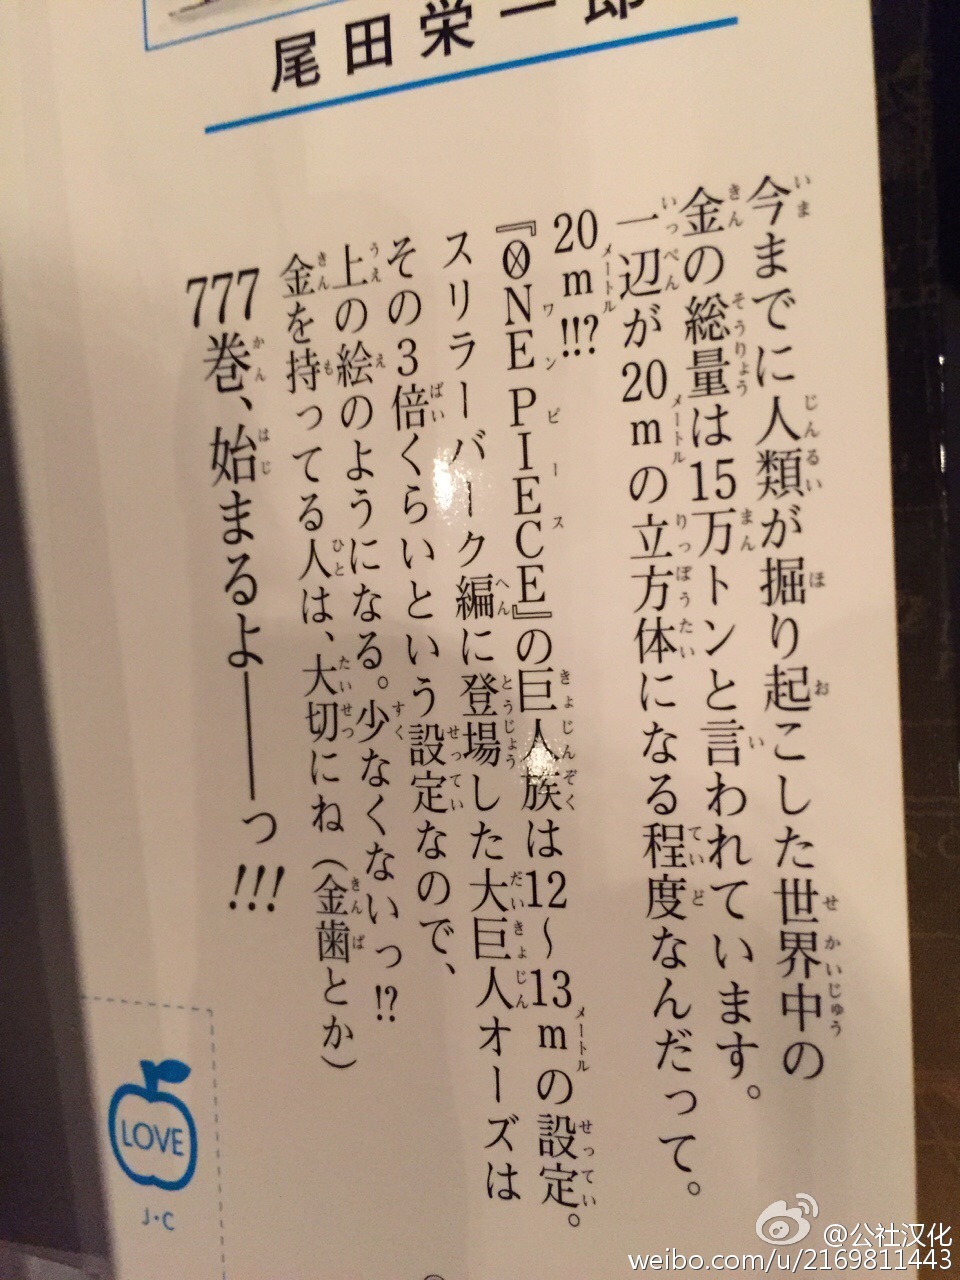 尾田栄一郎
今までに人類が掘り起こした世界中の
金の総量は15万トンと言われています。
一辺が20mの立方体になる程度なんだって。
20m!!?
『ONE PIECE』の巨人族は12〜13mの設定。
スリラーバーク編に登場した大巨人オーズは
その3倍くらいという設定なので、
上の絵のようになる。少なくないっ!?
金を持ってる人は、大切にね(金歯とか)
777巻、始まるよ———っ!!!
LOVE
J・C
@公社汉化
weibo.com/u/2169811443